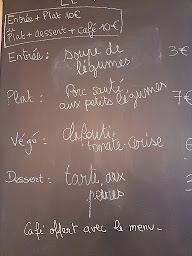 Entrée + Plat 10€
ou
Plat + dessert + Café 10€
Entrée: soupe de 3€
légumes
Plat: Porc sauté 7€
aux petits légumes
Végé: clafouti
tomate-cerise
Dessert: tarte aux
poires
Café offert avec le menu.